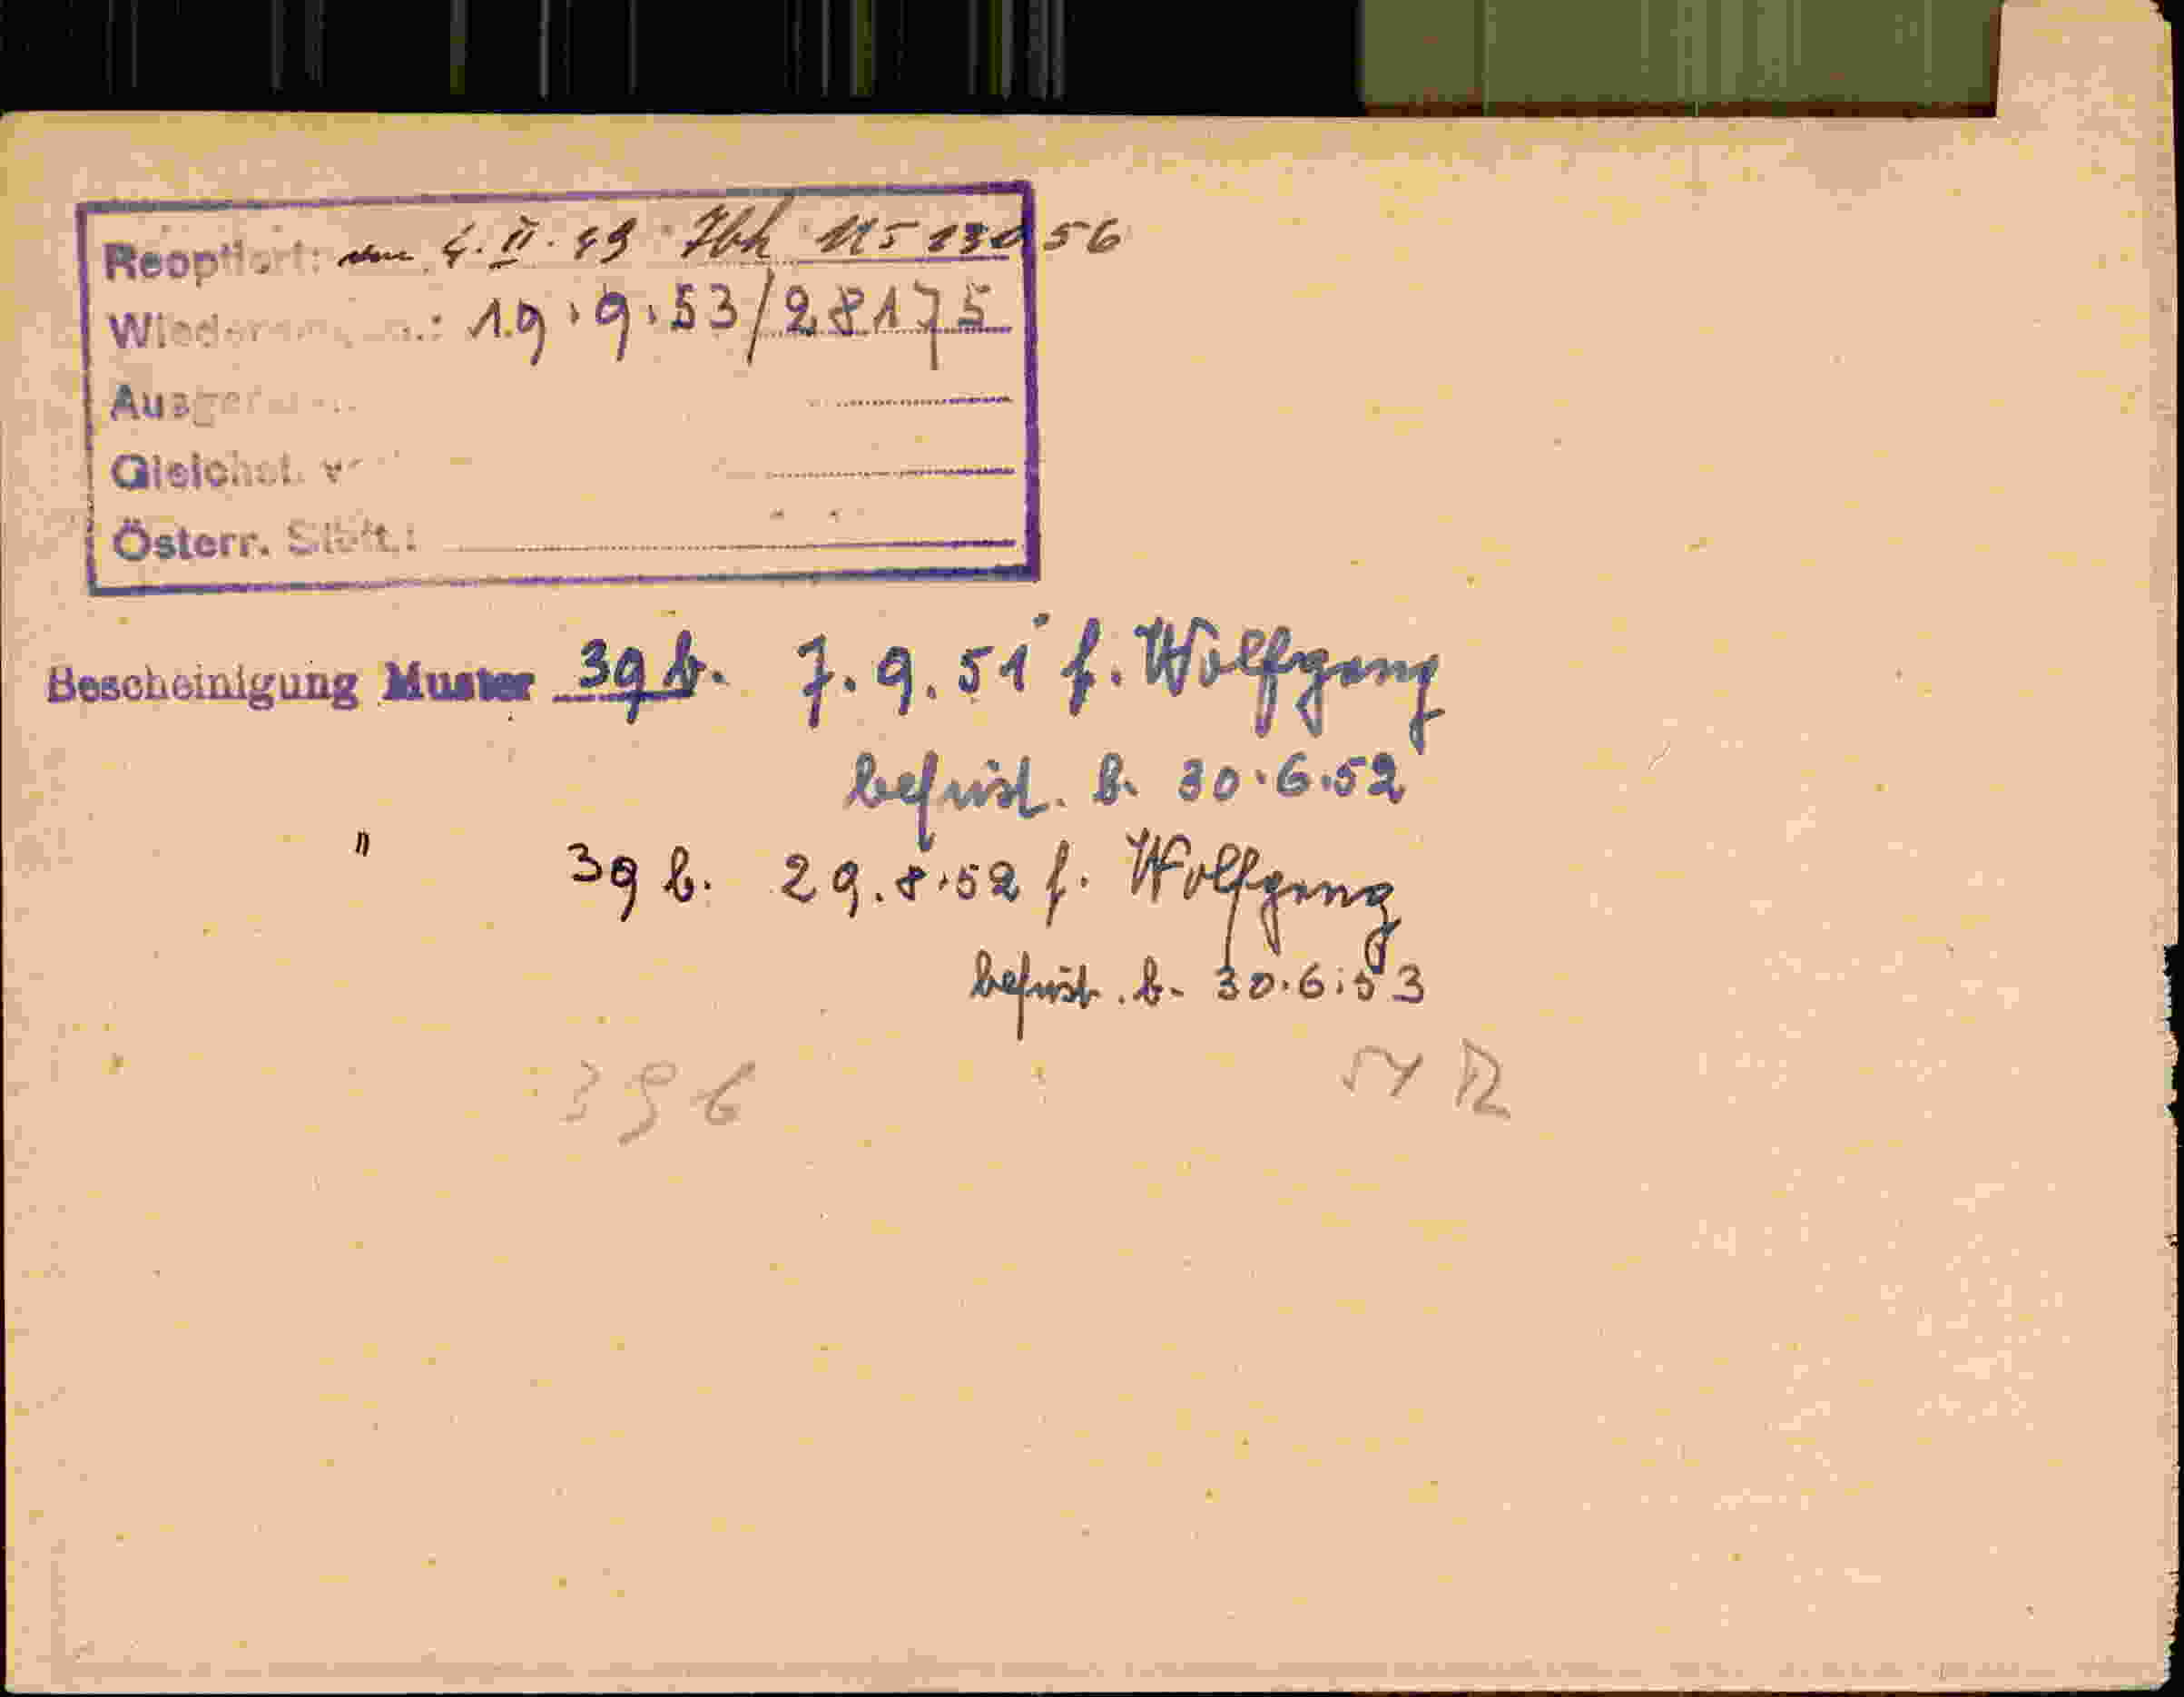 Reoptiert: den 4. II. 49 Zbh 115130 56
Wieder : 19.9.53/28175
Ausge
Gleichst. v
Österr. Stbft.:
Bescheinigung Muster 39 b. 7.9.51 f. Wolfgang
befrist. b. 30.6.52
" 39 b. 29.8.52 f. Wolfgang
befrist. b. 30.6.53
39 b 54 R